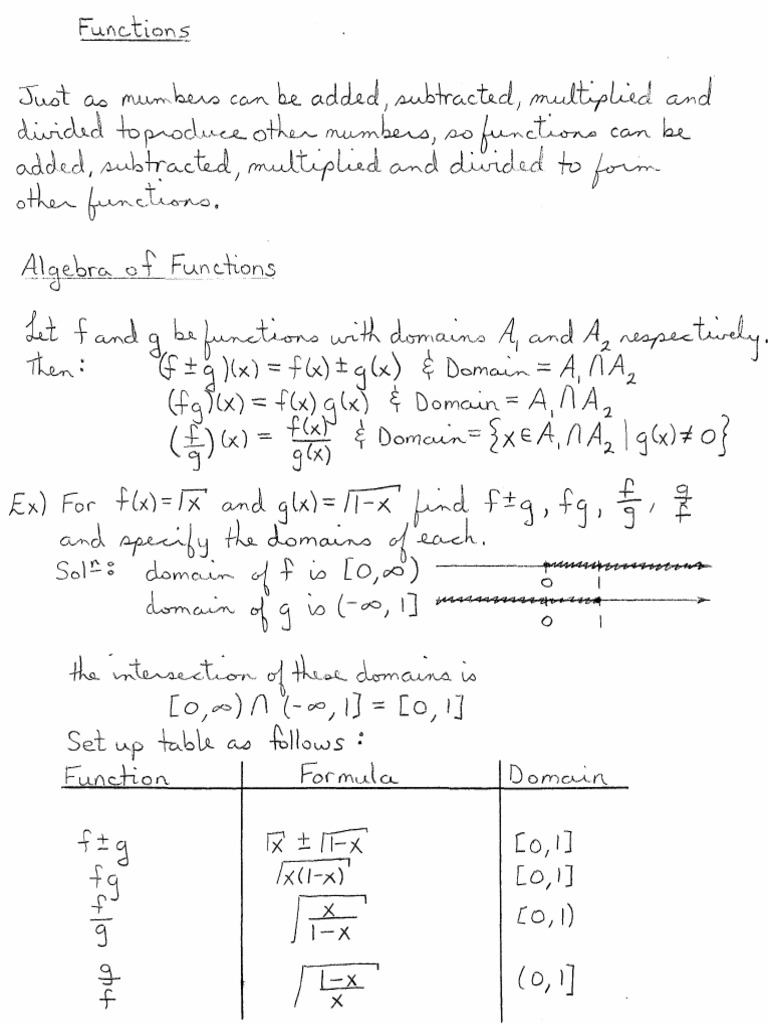 Functions
Just as numbers can be added, subtracted, multiplied and
divided to produce other numbers, so functions can be
added, subtracted, multiplied and divided to form
other functions.
Algebra of Functions
Let f and g be functions with domains A₁ and A₂ respectively.
Then: (f ± g)(x) = f(x) ± g(x) & Domain = A₁ ∩ A₂
(fg)(x) = f(x) g(x) & Domain = A₁ ∩ A₂
(f/g)(x) = f(x)/g(x) & Domain = {x ∈ A₁ ∩ A₂ | g(x) ≠ 0}
Ex) For f(x) = √x and g(x) = √(1-x) find f±g, fg, f/g, g/f
and specify the domains of each.
Solⁿ: domain of f is [0, ∞) 0 1
domain of g is (-∞, 1] 0 1
the intersection of these domains is
[0, ∞) ∩ (-∞, 1] = [0, 1]
Set up table as follows:
Function Formula Domain
f ± g √x ± √(1-x) [0, 1]
fg √(x(1-x)) [0, 1]
f/g √(x/(1-x)) [0, 1)
g/f √((1-x)/x) (0, 1]